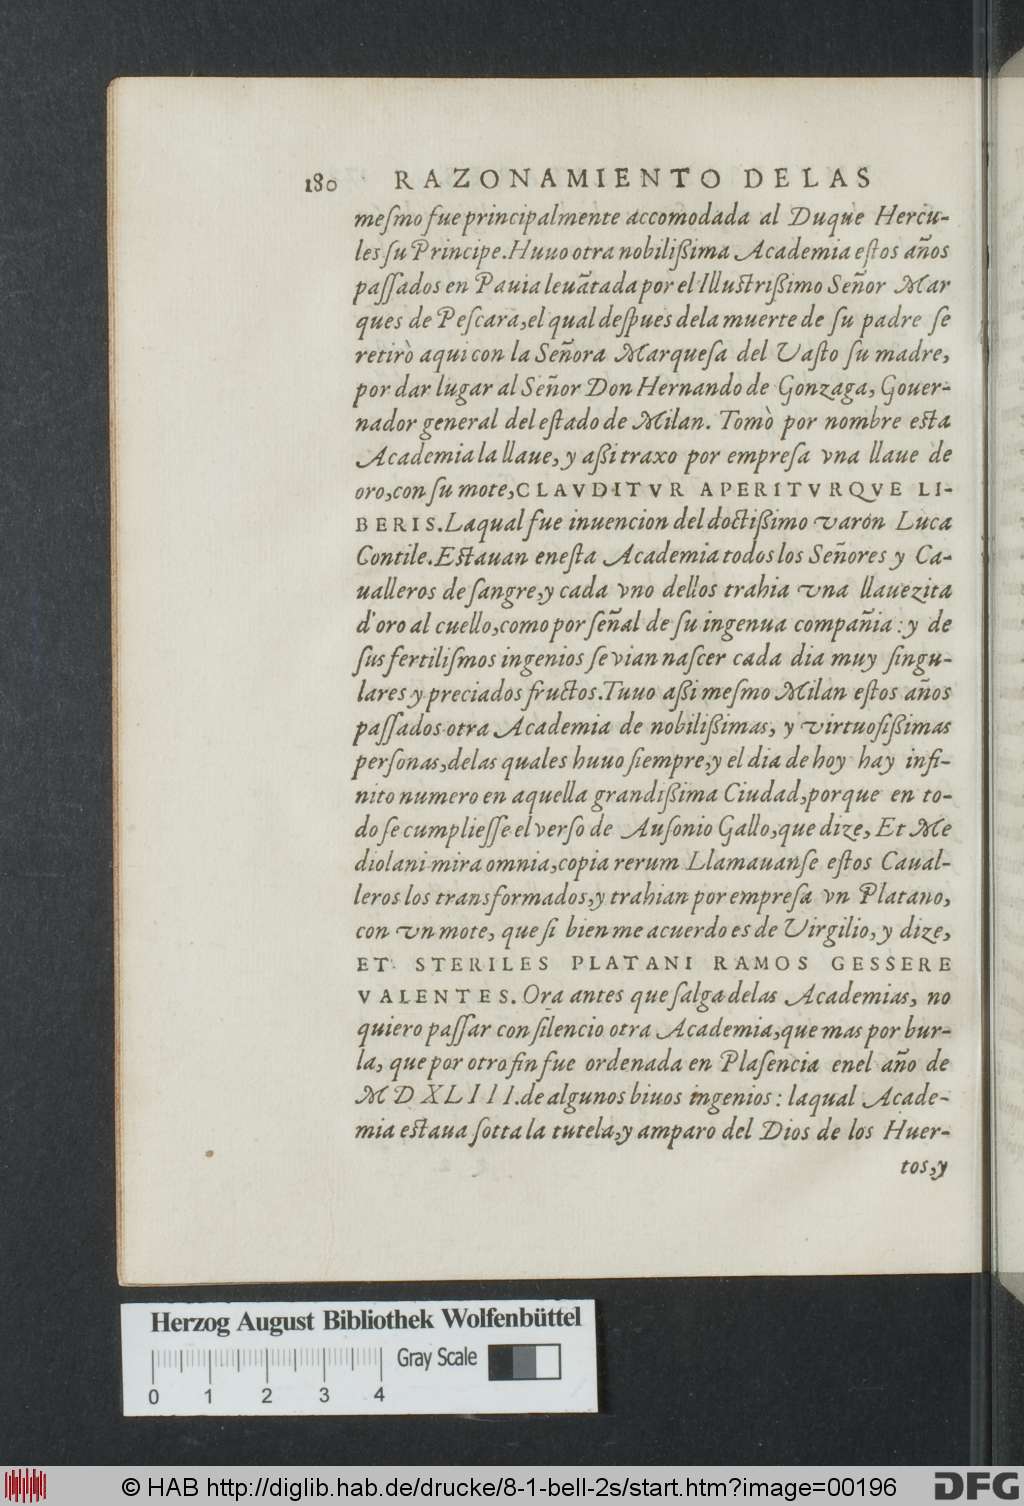 180 RAZONAMIENTO DELAS
meſmo fue principalmente accomodada al Duque Hercu-
les ſu Principe. Huuo otra nobilißima Academia eſtos años
paſſados en Pauia leuãtada por el Illuſtrißimo Señor Mar
ques de Peſcara, el qual deſpues dela muerte de ſu padre ſe
retirò aqui con la Señora Marqueſa del Vaſto ſu madre,
por dar lugar al Señor Don Hernando de Gonzaga, Gouer-
nador general del eſtado de Milan. Tomò por nombre eſta
Academia la llaue, y aßi traxo por empreſa vna llaue de
oro, con ſu mote, CLAVDITVR APERITVRQVE LI-
BERIS. Laqual fue inuencion del doctißimo varon Luca
Contile. Eſtauan eneſta Academia todos los Señores y Ca-
ualleros de ſangre, y cada vno dellos trahia vna llauezita
d'oro al cuello, como por ſeñal de ſu ingenua compañia: y de
ſus fertiliſmos ingenios ſe vian naſcer cada dia muy ſingu-
lares y preciados fructos. Tuuo aßi meſmo Milan eſtos años
paſſados otra Academia de nobilißimas, y virtuoſißimas
perſonas, delas quales huuo ſiempre, y el dia de hoy hay infi-
nito numero en aquella grandißima Ciudad, porque en to-
do ſe cumplieſſe el verſo de Auſonio Gallo, que dize, Et Me
diolani mira omnia, copia rerum Llamauanſe eſtos Caual-
leros los transformados, y trahian por empreſa vn Platano,
con vn mote, que ſi bien me acuerdo es de Virgilio, y dize,
ET STERILES PLATANI RAMOS GESSERE
VALENTES. Ora antes que ſalga delas Academias, no
quiero paſſar con ſilencio otra Academia, que mas por bur-
la, que por otro fin fue ordenada en Plaſencia enel año de
MDXLIII. de algunos biuos ingenios: laqual Acade-
mia eſtaua ſotta la tutela, y amparo del Dios de los Huer-
tos, y
Herzog August Bibliothek Wolfenbüttel
Gray Scale
0 1 2 3 4
© HAB http://diglib.hab.de/drucke/8-1-bell-2s/start.htm?image=00196
DFG